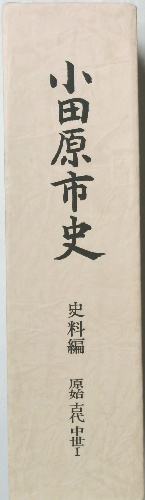 小田原市史
史料編
原始 古代 中世Ⅰ